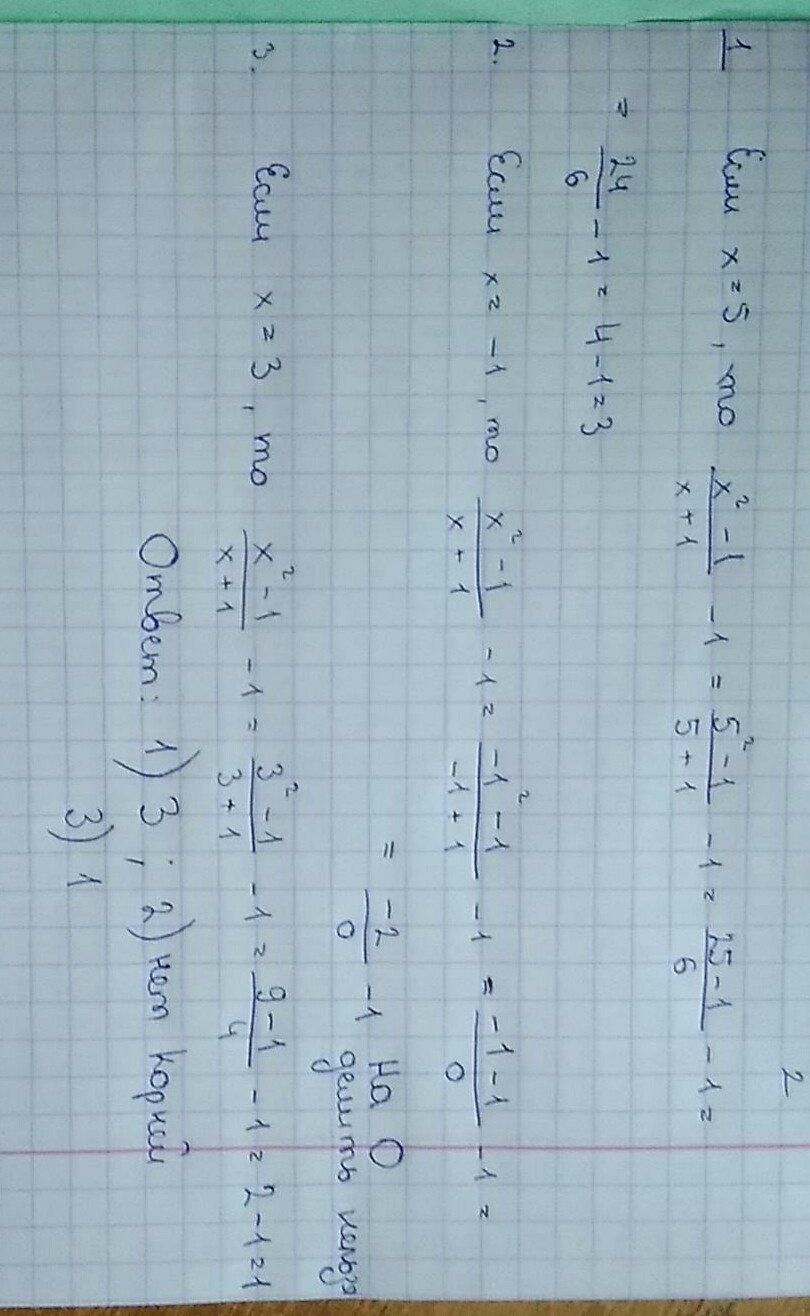 2
1 Если x = 5, то (x² - 1)/(x + 1) - 1 = (5² - 1)/(5 + 1) - 1 = (25 - 1)/6 - 1 =
= 24/6 - 1 = 4 - 1 = 3
2. Если x = -1, то (x² - 1)/(x + 1) - 1 = (-1² - 1)/(-1 + 1) - 1 = (-1 - 1)/0 - 1 =
= -2/0 - 1 На 0
делить нельзя
3. Если x = 3, то (x² - 1)/(x + 1) - 1 = (3² - 1)/(3 + 1) - 1 = (9 - 1)/4 - 1 = 2 - 1 = 1
Ответ: 1) 3 ; 2) нет корний
3) 1